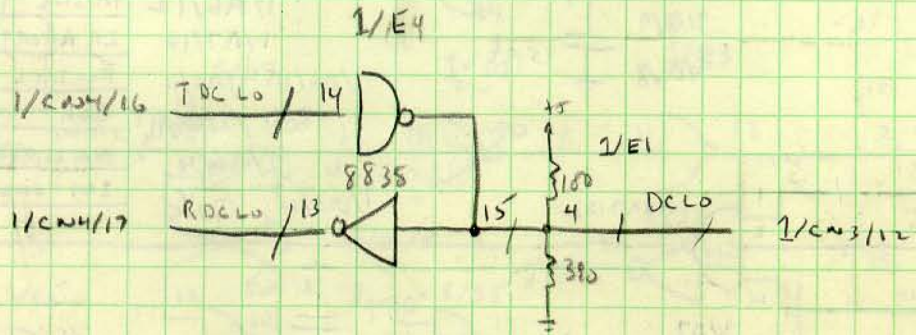 1/E4
1/CN4/16 TDCLO 14
+5
1/E1
180
8838
1/CN4/17 RDCLO 13 15 4 DCLO 1/CN3/12
390